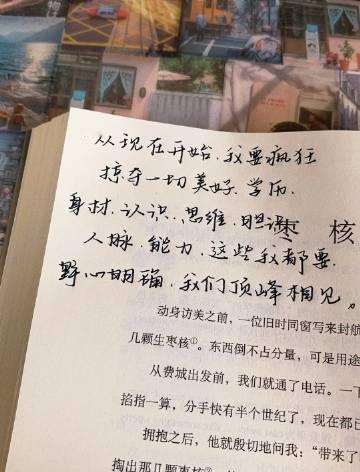 从现在开始，我要疯狂
掠夺一切美好．学历．
身材．认识．思维．胆识
人脉．能力．这些我都要．
野心明确，我们顶峰相见。
枣 核
动身访美之前，一位旧时同窗写来封航
几颗生枣核①。东西倒不占分量，可是用途
从费城出发前，我们就通了电话。一下
掐指一算，分手快有半个世纪了，现在都已
拥抱之后，他就殷切地问我：“带来了
掏出那几颗枣核②